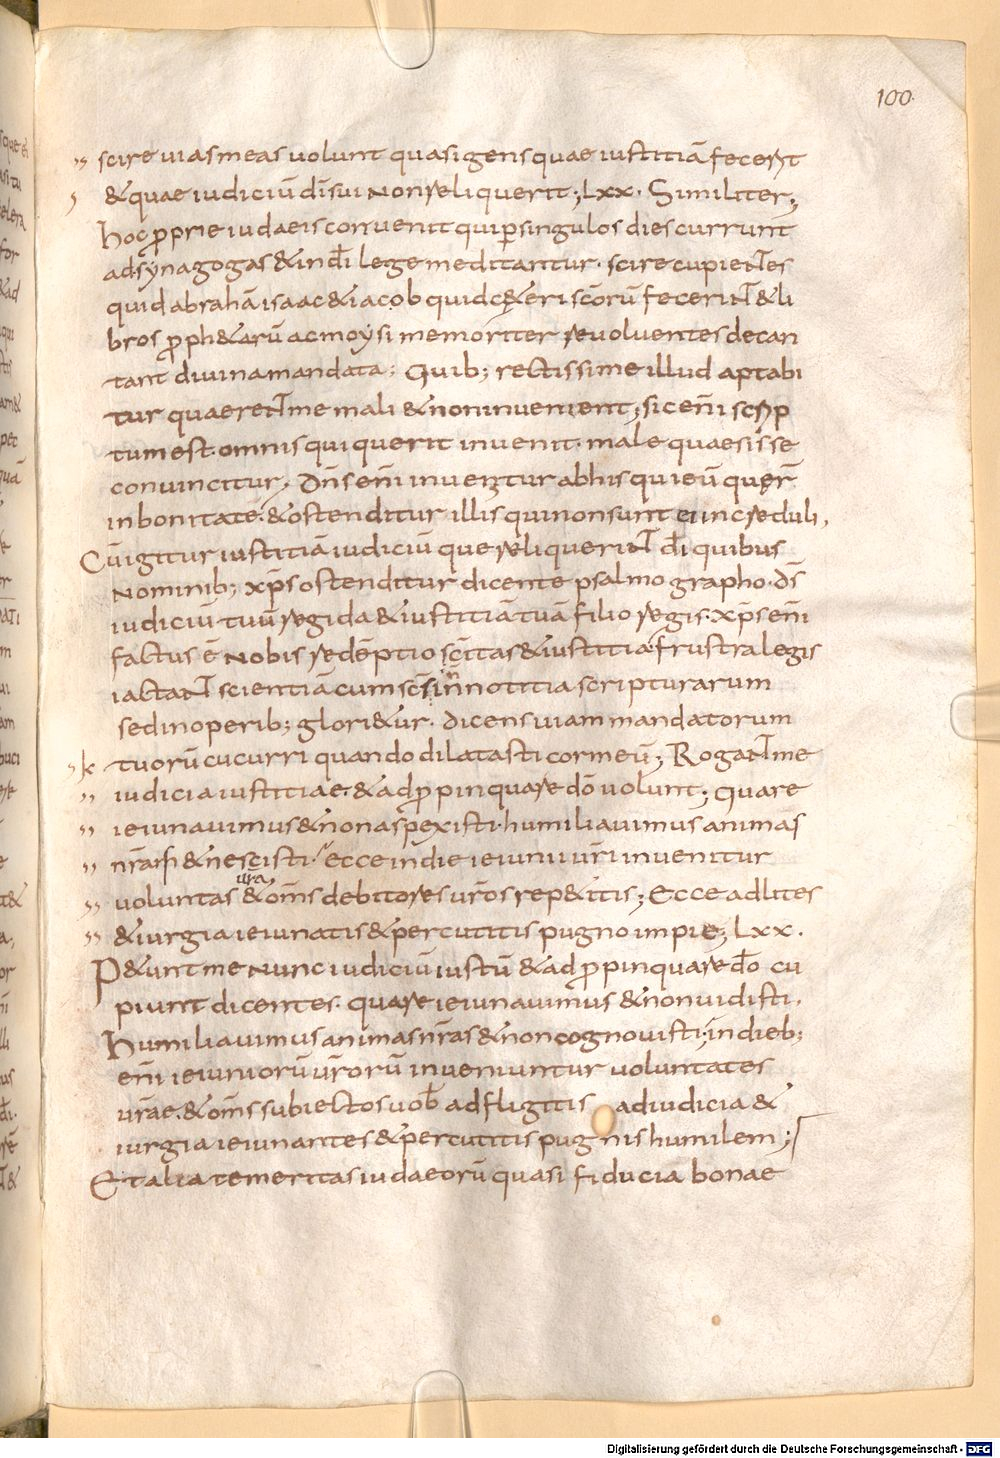 100.
scire uias meas uolunt quasi gens quae iustitiā fecerit
& quae iudiciū dī sui non reliquerit; LXX. Similiter;
hoc proprie iudaeis conuenit qui per singulos dies currunt
ad synagogas & in dī lege meditantur. scire cupientes
quid abrahā isaac & iacob quid c&eri scōrū fecerint & li
bros proph&arū ac moysi memoriter reuoluentes decan
tant diuina mandata; Quib; rectissime illud aptabi
tur quaerent me mali & non inuenient; sic enī scrip
tum est. omnis qui querit inuenit. male quaesisse
conuincitur. Dn̄s enī inuenitur ab his qui eū quer̄
in bonitate. & ostenditur illis qui non sunt ei increduli,
Cū igitur iustitiā iudiciū que reliquerint dī quibus
nominib; xp̄s ostenditur dicente psalmographo. dŝ
iudiciū tuū regi da & iustitiā tuā filio regis. xp̄s enī
factus ē nobis redēptio scītas & iustitia frustra legis
iactant scientiā cum scs̄ in notitia scripturarum
sed in operib; glori&ur. dicens uiam mandatorum
tuorū cucurri quando dilatasti cor meū; Rogant me
iudicia iustitiae. & adpropinquare dō uolunt; quare
ieiunauimus & non aspexisti. humiliauimus animas
nr̄as & nescisti. ecce in die ieiunii ur̄i inuenitur
uoluntas ur̄a & om̄s debitores ur̄os rep&itis; Ecce ad lites
& iurgia ieiunatis & percutitis pugno impie; LXX.
P&unt me nunc iudiciū iustū & adpropinquare dō cu
piunt dicentes. quare ieiunauimus & non uidisti.
Humiliauimus animas nr̄as & non cognouisti. in dieb;
enī ieiuniorū ur̄orū inueniuntur uoluntates
ur̄ae. & om̄s subiectos uob̄ adfligitis ad iudicia &
iurgia ieiunantes & percutitis pugnis humilem;
Et alia temeritas iudaeorū quasi fiducia bonae
Digitalisierung gefördert durch die Deutsche Forschungsgemeinschaft - DFG